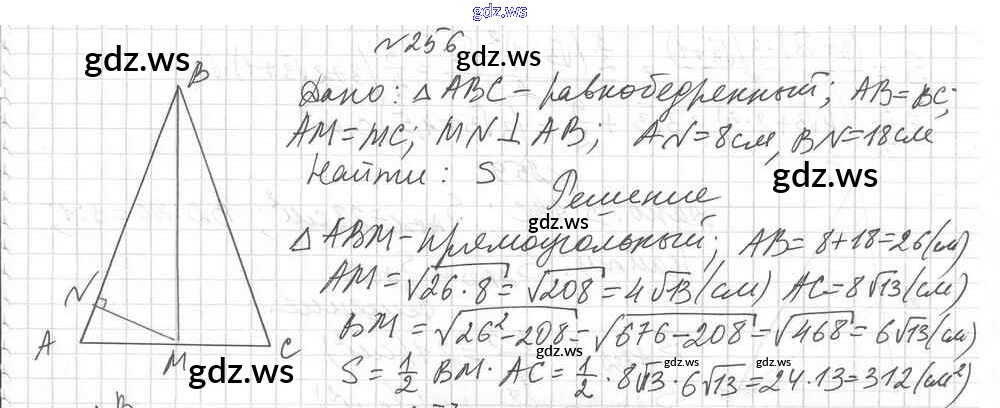 gdz.ws
№256
gdz.ws gdz.ws
B
Дано: △ABC - равнобедренный; AB=BC;
AM=MC; MN⊥AB; AN=8см, BN=18см
Найти: S
gdz.ws
Решение
gdz.ws
△ABM-прямоугольный; AB=8+18=26(см)
AM=√26·8=√208=4√13(см) AC=8√13(см)
N
BM=√26²-208=√676-208=√468=6√13(см)
A M C
gdz.ws gdz.ws
S=1/2 BM·AC=1/2·8√13·6√13=24·13=312(см²)
B